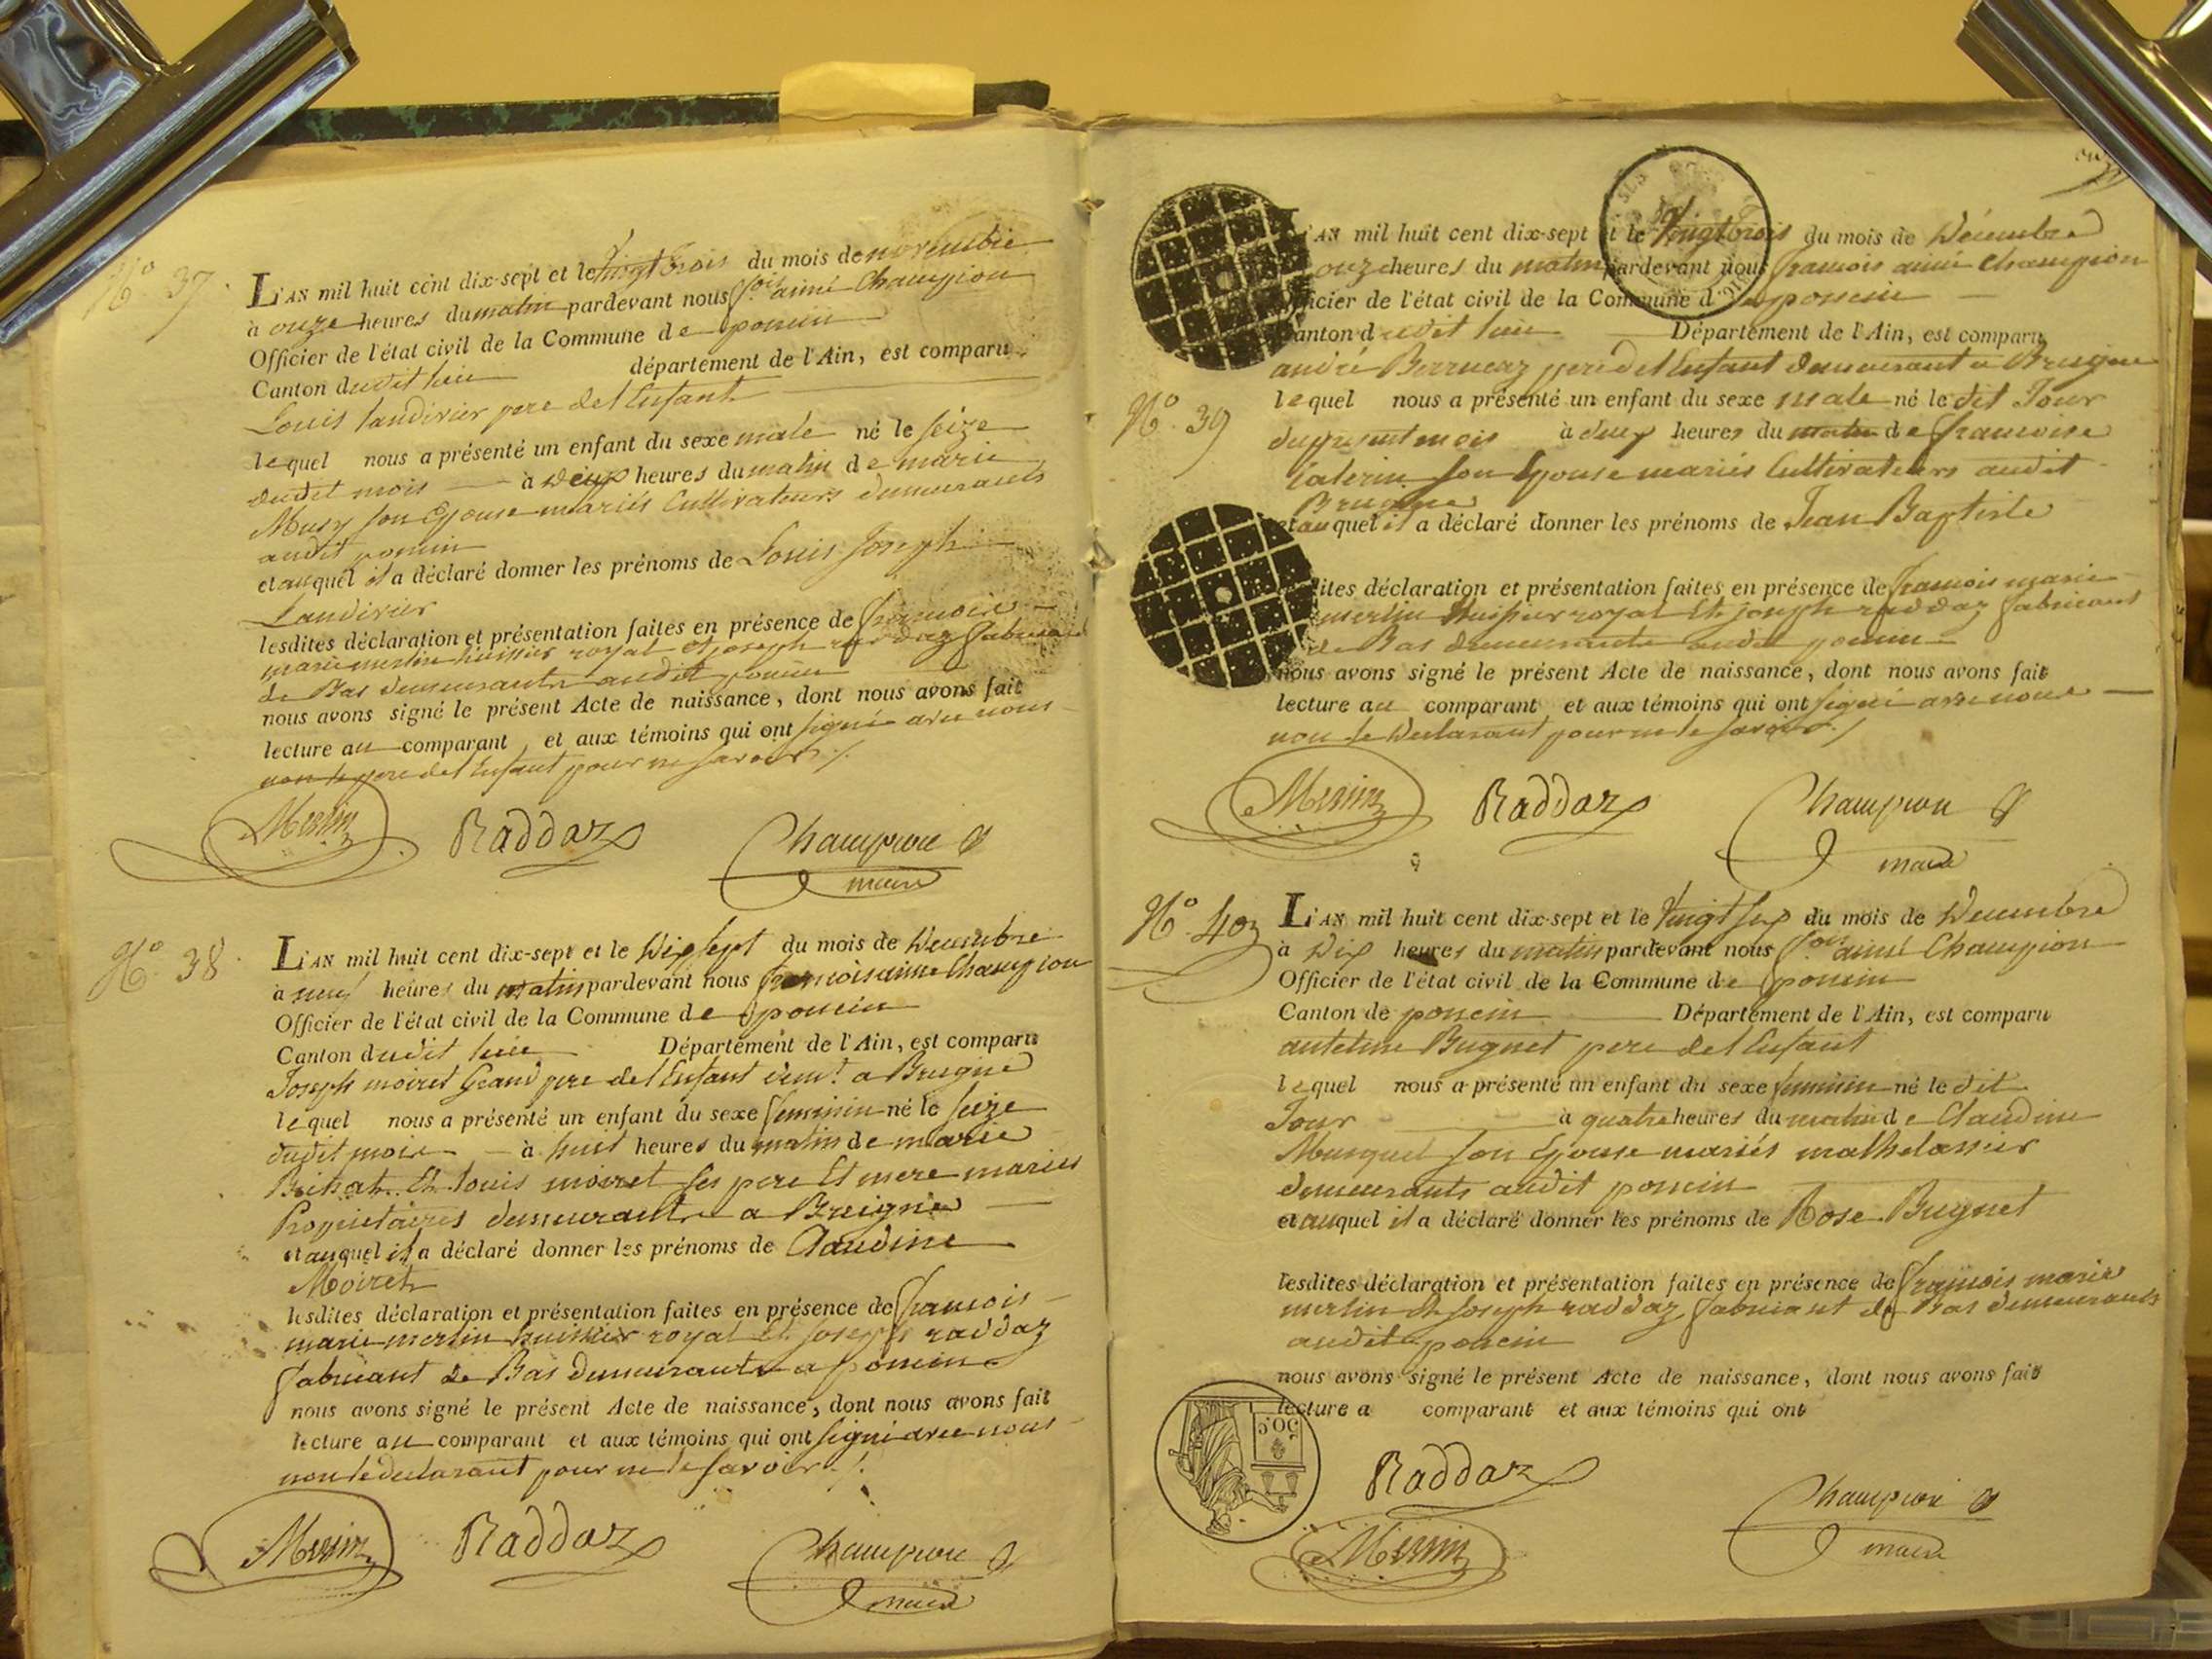 N.o 37.
L'AN mil huit cent dix-sept et le vingt trois du mois de novembre
à onze heures du matin pardevant nous f.ois aimé Champion
Officier de l'état civil de la Commune de poncin
Canton dudit lieu département de l'Ain, est comparu
Louis Landivier pere de l'Enfant
lequel nous a présenté un enfant du sexe male né le seize
dudit mois à deux heures du matin de marie
Musy son Epouse mariés Cultivateurs demeurants
audit poncin
et auquel il a déclaré donner les prénoms de Louis Joseph
Landivier
lesdites déclaration et présentation faites en présence de françois
marie merlin huissier royal et joseph raddaz fabricant
de Bas demeurants audit poncin
nous avons signé le présent Acte de naissance, dont nous avons fait
lecture au comparant, et aux témoins qui ont signé avec nous
non le pere de l'Enfant pour ne savoir ./.
Merlin Raddaz Champion
maire
N.o 38.
L'AN mil huit cent dix-sept et le dix sept du mois de decembre
à neuf heures du matin pardevant nous françois aimé Champion
Officier de l'état civil de la Commune de poncin
Canton dudit lieu Département de l'Ain, est comparu
Joseph moiret Grand pere de l'Enfant dem.t a Breigne
lequel nous a présenté un enfant du sexe feminin né le seize
dudit mois à huit heures du matin de marie
Et louis moiret ses pere Et mere mariés
Proprietaires demeurants a Breigne
et auquel il a déclaré donner les prénoms de Claudine
Moiret
lesdites déclaration et présentation faites en présence de françois
marie merlin huissier royal Et Joseph raddaz
fabricant de Bas demeurants a poncin
nous avons signé le présent Acte de naissance, dont nous avons fait
lecture au comparant et aux témoins qui ont signé avec nous
non le declarant pour ne le savoir ./.
Merlin Raddaz Champion
maire
N.o 39
L'AN mil huit cent dix-sept et le vingt trois du mois de decembre
onze heures du matin pardevant nous francois aimé Champion
Officier de l'état civil de la Commune d poncin
Canton dudit lieu Département de l'Ain, est comparu
andré Berrucaz pere de l'Enfant demeurant a Breigne
lequel nous a présenté un enfant du sexe male né le dit Jour
du present mois à deux heures du matin de francoise
son Epouse mariés Cultivateurs audit
Breigne
et auquel il a déclaré donner les prénoms de Jean Baptiste
lesdites déclaration et présentation faites en présence de francois marie
merlin huissier royal Et joseph raddaz fabricant
de Bas demeurants audit poncin
nous avons signé le présent Acte de naissance, dont nous avons fait
lecture au comparant et aux témoins qui ont signé avec nous
non le declarant pour ne le savoir ./
Merlin Raddaz Champion
maire
N.o 40
L'AN mil huit cent dix-sept et le vingt six du mois de decembre
à dix heures du matin pardevant nous f.ois aimé Champion
Officier de l'état civil de la Commune de poncin
Canton de poncin Département de l'Ain, est comparu
antelme Bugnet pere de l'Enfant
lequel nous a présenté un enfant du sexe feminin né le dit
Jour à quatre heures du matin de Claudine
son Epouse mariés mathelassier
demeurants audit poncin
et auquel il a déclaré donner les prénoms de Rose Bugnet
lesdites déclaration et présentation faites en présence de françois marie
merlin Et Joseph raddaz fabricant de Bas demeurants
audit poncin
nous avons signé le présent Acte de naissance, dont nous avons fait
lecture a comparant et aux témoins qui ont
50c
Raddaz Champion
Merlin maire